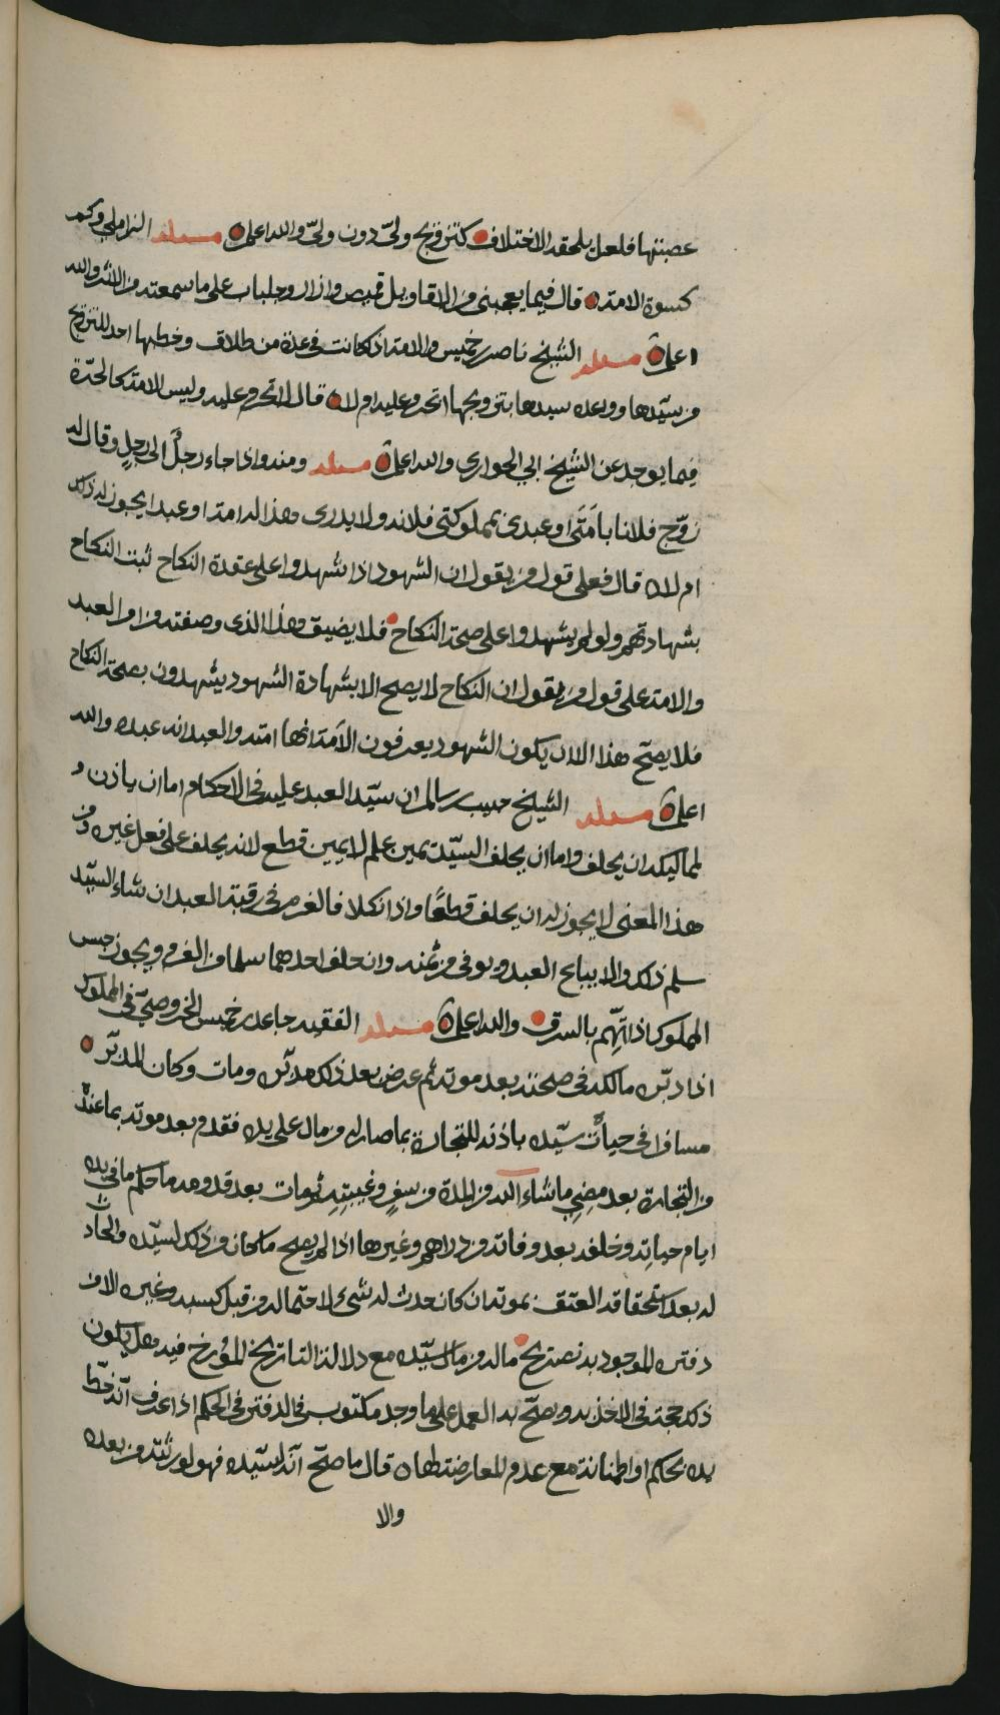 عصبتها فلعل يلحقه الاختلاف كتزويج وليّ دون وليّ والله اعلم مسئلة الزاملي وكم
كسوة الامة قال فيما يعجبني من الاقاويل قميص وازار وجلباب على ما سمعته من الاثر والله
اعلم مسئلة الشيخ ناصر بن خميس والامة اذا كانت في عدة من طلاق وخطبها احد للتزويج
من سيّدها ووعده سيدها بتزويجها اتحرم عليه ام لا قال لا تحرم عليه وليس الامة كالحرّة
فيما يوجد عن الشيخ ابي الحواري والله اعلم مسئلة ومنه واذا جاء رجلٌ الى رجلٍ وقال له
زوّج فلانا بامَتَى او عبدى بمملوكتى فلانة ولا يدرى هذا له امة او عبد ايجوز له ذلك
ام لا قال فعلى قول من يقول ان الشهود اذا شهدوا على عقدة النكاح ثبت النكاح
بشهادتهم ولو لم يشهدوا على صحة النكاح فلا يضيق هذا الذى وصفته من امر العبد
والامة على قول من يقول ان النكاح لا يصح الا بشهادة الشهود يشهدون بصحة النكاح
فلا يصحّ هذا الا ان يكون الشهود يعرفون الامَة انها امته والعبد انه عبده والله
اعلم مسئلة الشيخ حبيب بن سالم ان سيّد العبد عليه في الاحكام اما ان ياذن و
لمماليكه ان يحلف واما ان يحلف السيّد يمين علم لا يمين قطع لانه يحلف على فعل غيره ومن
هذا المعنى لا يجوز له ان يحلف قطعًا واذا نكلا فالغرم في رقبة العبد ان شاء السيّد
سلم ذلك والا يباع العبد ويوفى من ثمنه وان حلف احدهما سلما من الغرم ويجوز حبس
المملوك اذا اتّهم بالسرق والله اعلم مسئلة الفقيه جاعد بن خميس الخروصيّ في المملوك
اذا دبّره مالكه في صحته بعد موته ثم عرض بعد ذلك مدبّره ومات وكان المدبّر
مسافرا في حياة سيّده باذنه للتجارة بما صار له من مال على يده فقدم بعد موته بما عنده
من التجارة بعد مضي ما شاء الله من المدة من سفرٍ وغيبتِهِ ثم مات بعد قدومه ما حكم ما في يده
ايام حياته وخلفه بعد وفاته من دراهم وغيرها اذا لم يصح ما كان من ذلك لسيّده والحادث
له بعد استحقاقه العتق بموته ان كان حدث له شيء لاحتماله من قبل كسبه وغيره الا في
دفتره الموجود به تصريح ماله من مال سيّده مع دلالة التاريخ المؤرخ فيه وهل يكون
ذلك حجة في الاخذ به ويصحّ به العمل على ما وجد مكتوب في الدفتر في الحكم اذا عرف انّه خطّ
يده بحكم او اطمنانة مع عدم المعارضة لها قال ما صحّ انّه لسيّده فهو لورثته من بعده
والا